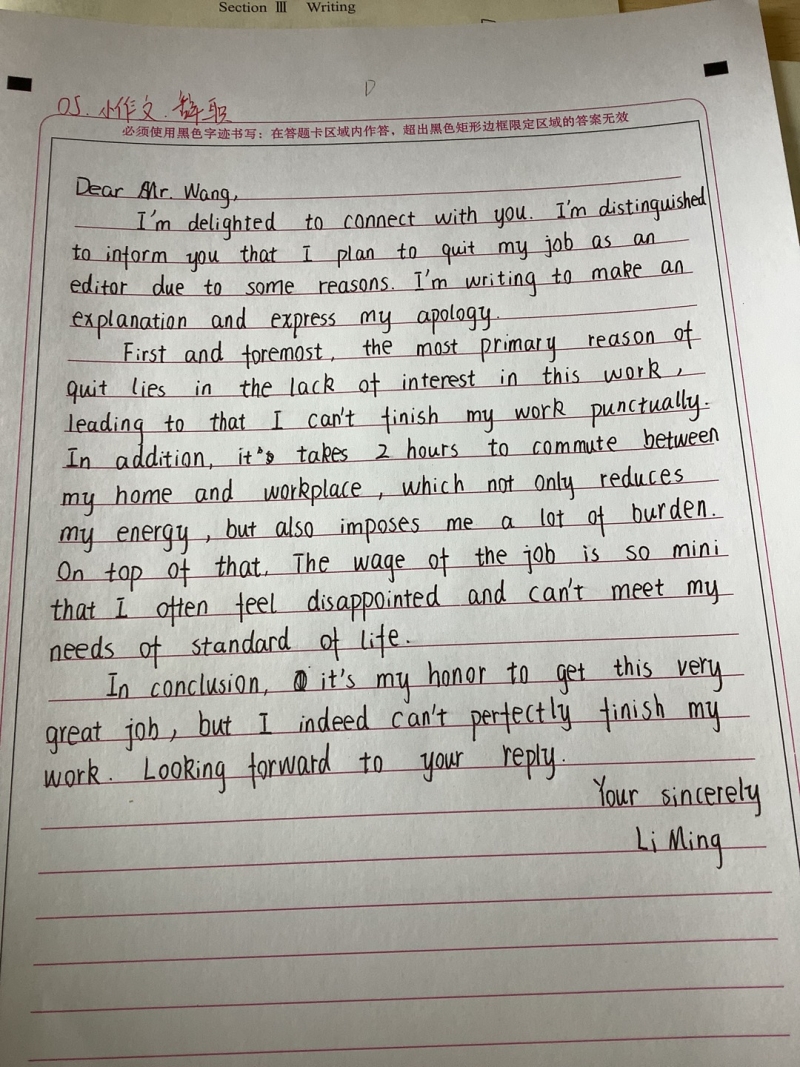 Section III Writing
D
05. 小作文. 辞职
必须使用黑色字迹书写：在答题卡区域内作答，超出黑色矩形边框限定区域的答案无效
Dear Mr. Wang,
I'm delighted to connect with you. I'm distinguished
to inform you that I plan to quit my job as an
editor due to some reasons. I'm writing to make an
explanation and express my apology.
First and foremost, the most primary reason of
quit lies in the lack of interest in this work,
leading to that I can't finish my work punctually.
In addition, it's takes 2 hours to commute between
my home and workplace, which not only reduces
my energy, but also imposes me a lot of burden.
On top of that, The wage of the job is so mini
that I often feel disappointed and can't meet my
needs of standard of life.
In conclusion, it's my honor to get this very
great job, but I indeed can't perfectly finish my
work. Looking forward to your reply.
Your sincerely
Li Ming